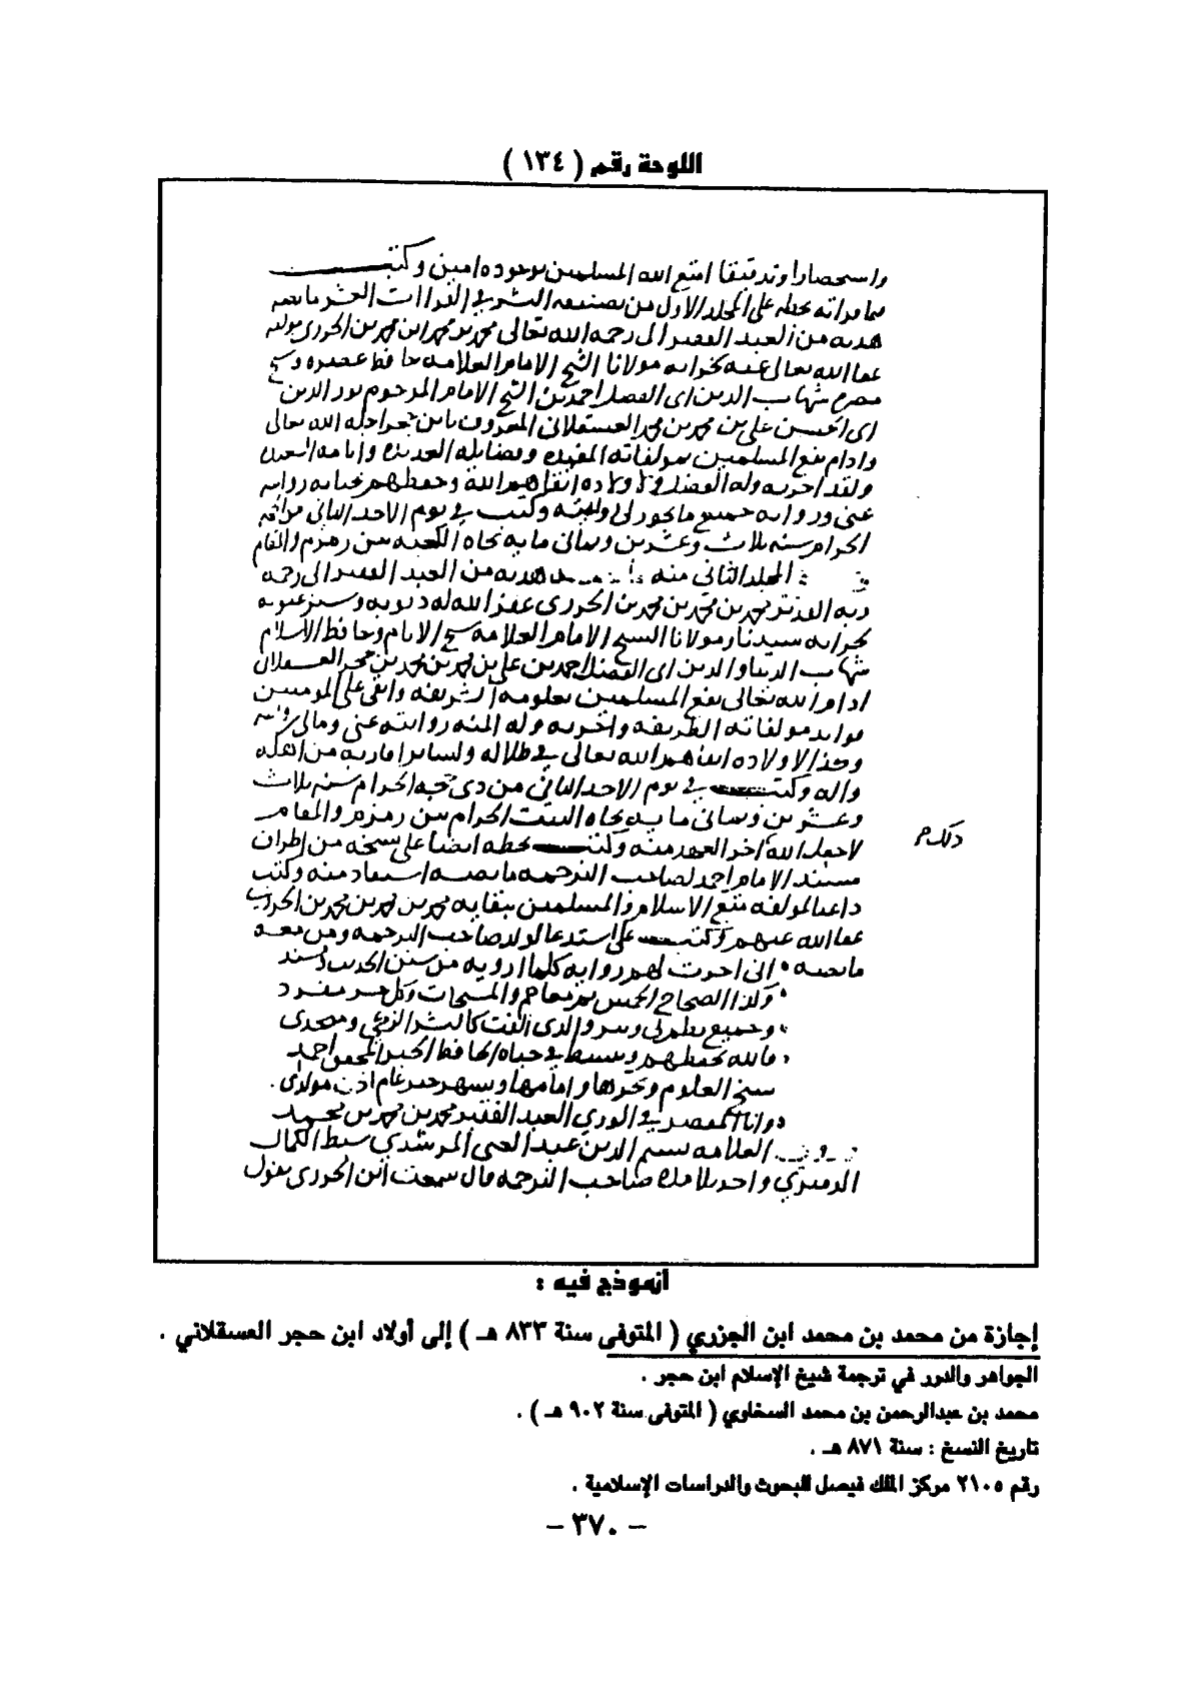 اللوحة رقم ( ١٣٤ )
واستحضارا وتدقيقا امتع الله المسلمين بوجوده امين وكتب
مما قراته بخطه على المجلد الاول من تصنيفه النشر في القراات العشر ما نصه
هديه من العبد الفقير الى رحمه الله تعالى محمد بن محمد بن محمد بن الجزري مولفه
عفا الله تعالى عنه لخزانه مولانا الشيخ الامام العلامه حافظ عصره وشيخ
مصره شهاب الدين ابى الفضل احمد بن الشيخ الامام المرحوم نور الدين
ابى الحسن على بن محمد بن محمد العسقلانى المعروف بابن حجر اجله الله تعالى
وادام نفع المسلمين بمولفاته المفيده وفضايله العديده وايامه السعيده
ولقد اجزته وله الفضل ولاولاده ابقاهم الله وحفظهم لجنابه روايه
عنى وروايه جميع ما يجوز لى والمنه وكتب في يوم الاحد الثانى من
الحرام سنه ثلاث وعشرين وثمانى مايه تجاه الكعبه بين زمزم والمقام
المجلد الثانى منه هديه من العبد الفقير الى رحمه
ربه العزيز محمد بن محمد بن محمد بن الجزرى غفر الله له ذنوبه وستر عيوبه
لخزانه سيدنا ومولانا الشيخ الامام العلامه شيخ الانام وحافظ الاسلام
شهاب الدنيا والدين ابى الفضل احمد بن على بن محمد بن محمد بن حجر العسقلانى
ادام الله تعالى نفع المسلمين بعلومه الشريفه وابقى على المومنين
فوايد مولفاته الظريفه واجزته وله المنه روايته عنى ومالى روايته
وكذا لاولاده ابقاهم الله تعالى في ظلاله ولساير اقاربه من اهله
واله وكتب في يوم الاحد الثانى من ذى حجه الحرام سنه ثلاث
وعشرين وثمانى مايه تجاه البيت الحرام بين زمزم والمقام
لاجعل الله اخر العهد منه وكتب بخطه ايضا على نسخه من اطراف
ذلك م
مسند الامام احمد لصاحب الترجمه ما نصه استفاد منه وكتب
داعيا لمولفه متع الاسلام والمسلمين ببقايه محمد بن محمد بن محمد بن الجزري
عفا الله عنهم وكتب على استدعا لولد صاحب الترجمه ومن معه
ما نصه • انى اجزت لهم روايه كلما ارويه من سنن الحديث ومسند
• وكذا الصحاح الخمس ثم معاجم والمشيخات وكل جزء مفرد
• وجميع نظم لى ونثر والذى الفت كالنشر الزكى ومنجدى
• فالله يحفظهم ويبسط في حياه الحافظ الحبر المحقق احمد
شيخ العلوم وبحرها وامامها وبشهر عام اذن مولدى
وانا المقصر في الورى العبد الفقير محمد بن محمد بن محمد
العلامه نسيم الدين عبد الغنى المرشدي سبط الكمال
الدميري واحد تلامذه صاحب الترجمه قال سمعت ابن الجزرى يقول
أنموذج فيه :
إجازة من محمد بن محمد ابن الجزري ( المتوفى سنة ٨٣٣ هـ ) إلى أولاد ابن حجر العسقلاني .
الجواهر والدرر في ترجمة شيخ الإسلام ابن حجر .
محمد بن عبدالرحمن بن محمد السخاوي ( المتوفى سنة ٩٠٢ هـ ) .
تاريخ النسخ : سنة ٨٧١ هـ .
رقم ٢١٠٥ مركز الملك فيصل للبحوث والدراسات الإسلامية .
– ٣٧٠ –